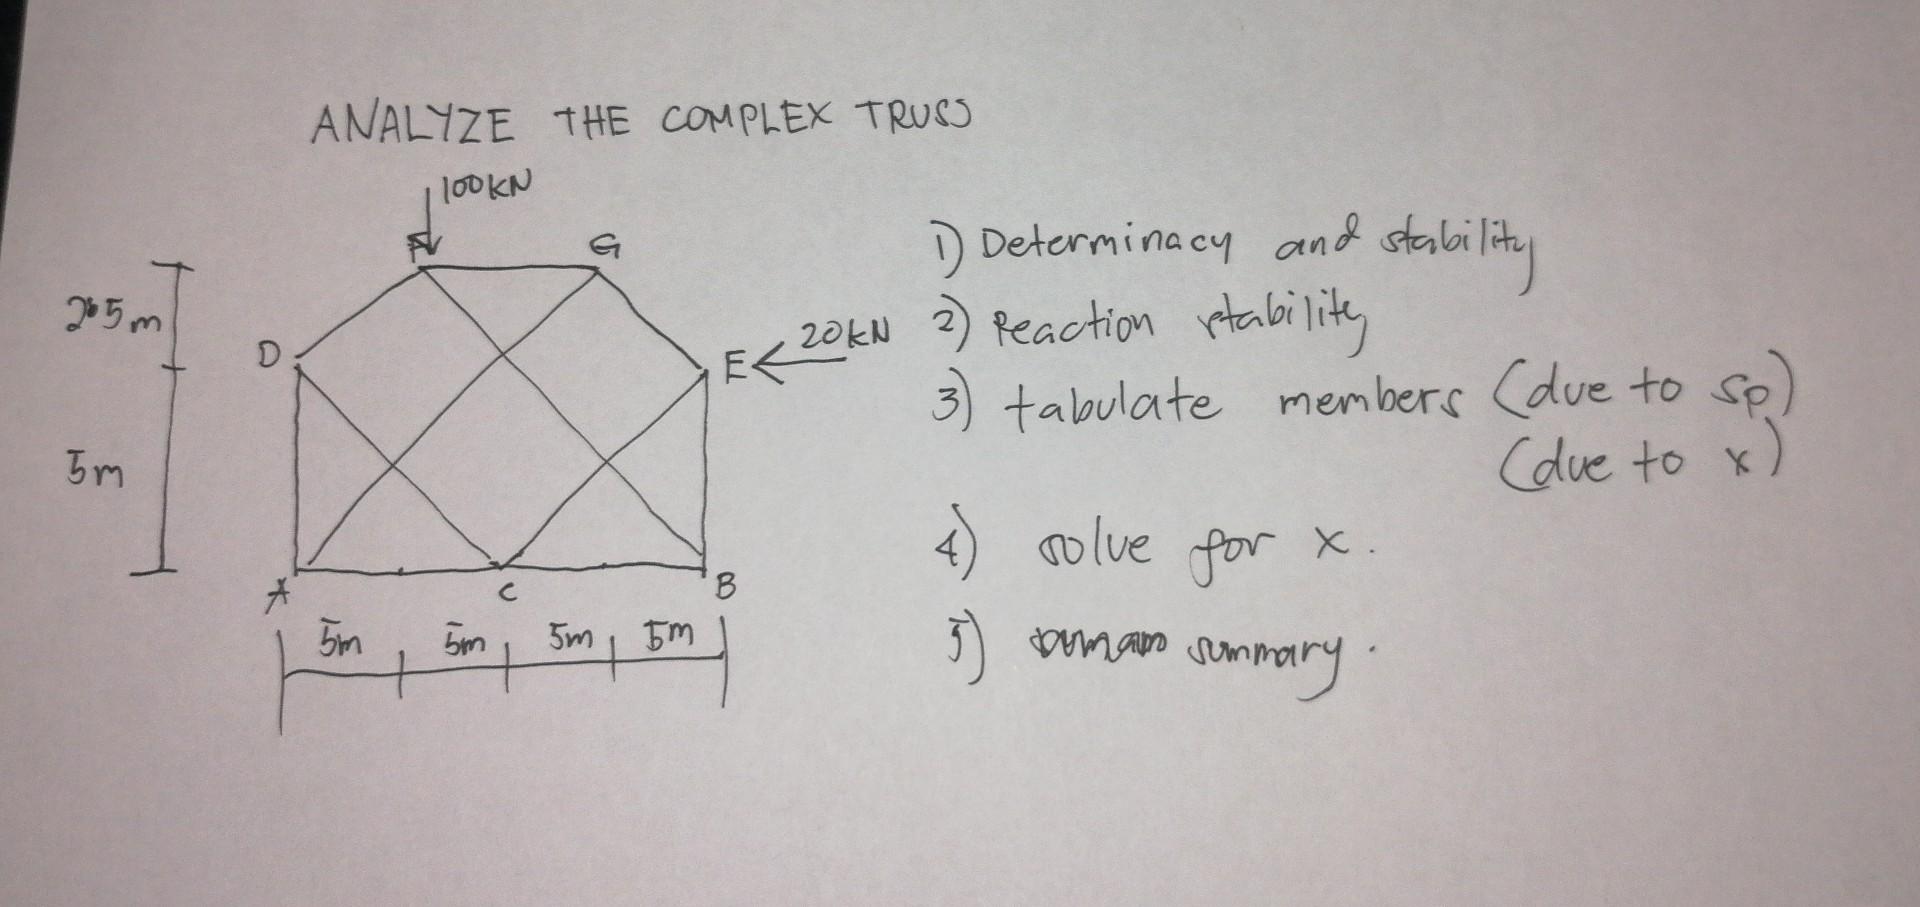 ANALYZE THE COMPLEX TRUSS
100KN
G
2.5m
D
E
20KN
5m
A
C
B
5m 5m 5m 5m
1) Determinacy and stability
2) Reaction stability
3) tabulate members (due to sp)
(due to x)
4) solve for x.
5) summary.